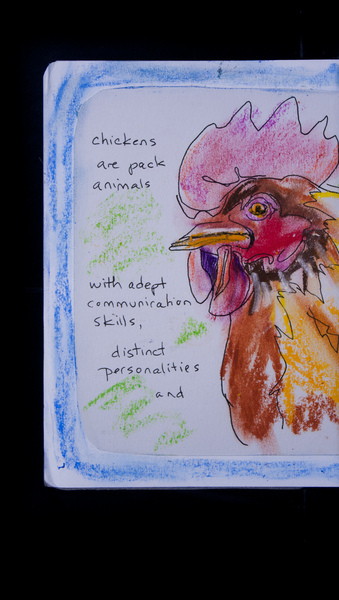 chickens
are pack
animals
with adept
communication
skills,
distinct
personalities
and